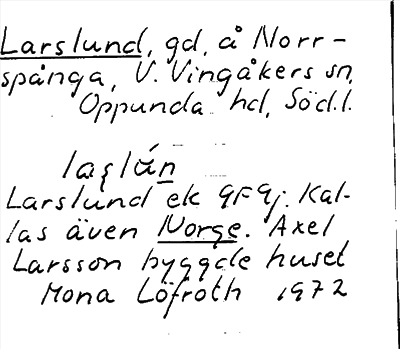 Larslund, gd, å Norr-
spånga, V. Vingåkers sn,
Oppunda hd, Söd.l.
Larslund ek 9F9j. Kal-
las även Norge. Axel
Larsson byggde huset
Mona Löfroth 1972